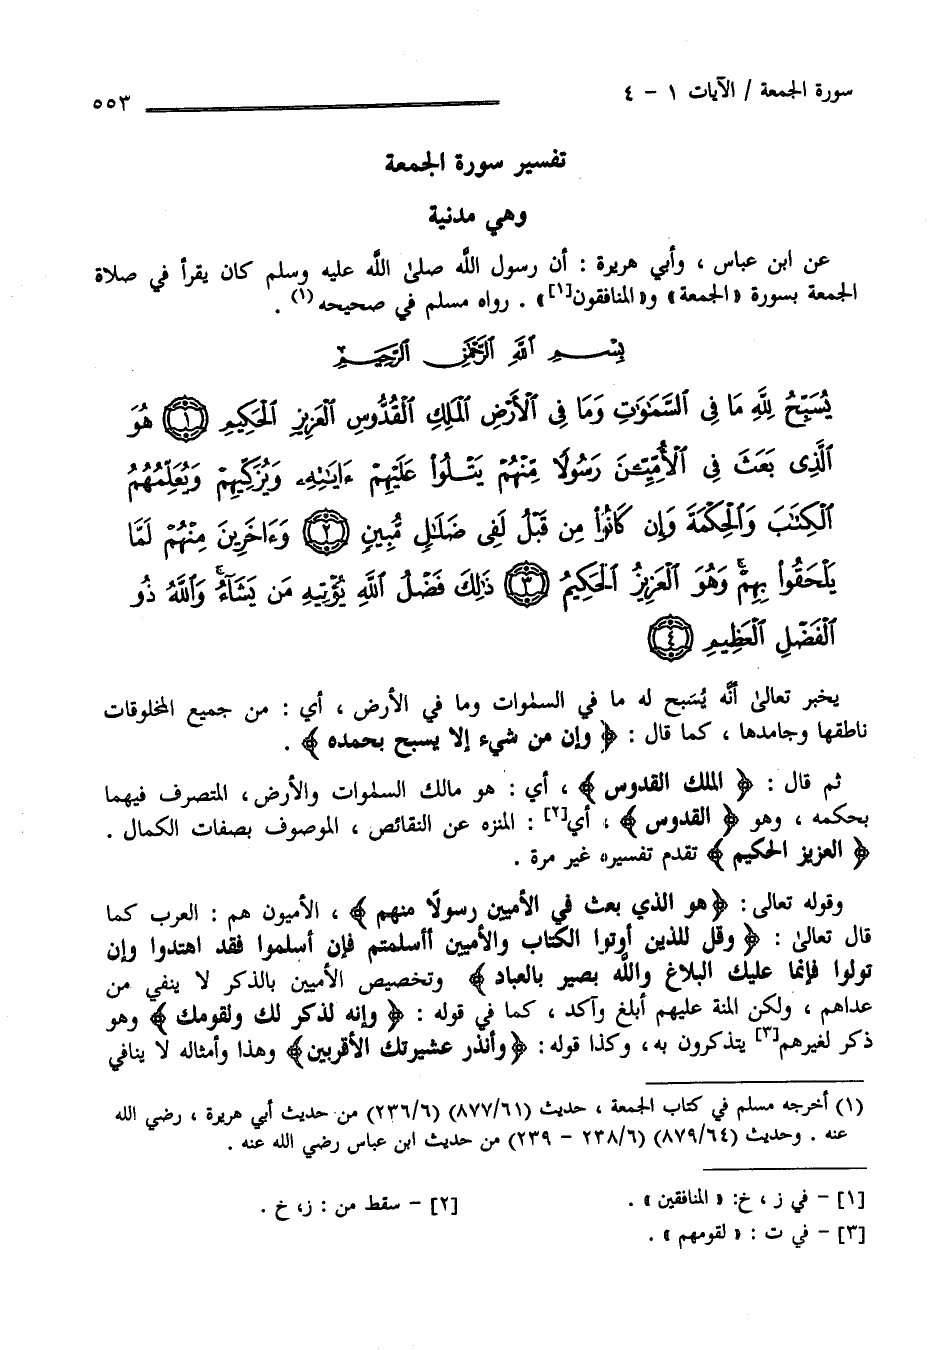 سورة الجمعة / الآيات ١ - ٤
٥٥٣
تفسير سورة الجمعة
وهي مدنية
عن ابن عباس ، وأبي هريرة : أن رسول اللَّه صلىٰ اللَّه عليه وسلم كان يقرأ في صلاة
الجمعة بسورة «الجمعة» و«المنافقون[١]» . رواه مسلم في صحيحه (١) .
بِسْمِ اللَّهِ الرَّحْمَٰنِ الرَّحِيمِ
يُسَبِّحُ لِلَّهِ مَا فِى ٱلسَّمَٰوَٰتِ وَمَا فِى ٱلْأَرْضِ ٱلْمَلِكِ ٱلْقُدُّوسِ ٱلْعَزِيزِ ٱلْحَكِيمِ ١ هُوَ
ٱلَّذِى بَعَثَ فِى ٱلْأُمِّيِّـۧنَ رَسُولًا مِّنْهُمْ يَتْلُوا۟ عَلَيْهِمْ ءَايَٰتِهِۦ وَيُزَكِّيهِمْ وَيُعَلِّمُهُمُ
ٱلْكِتَٰبَ وَٱلْحِكْمَةَ وَإِن كَانُوا۟ مِن قَبْلُ لَفِى ضَلَٰلٍ مُّبِينٍ ٢ وَءَاخَرِينَ مِنْهُمْ لَمَّا
يَلْحَقُوا۟ بِهِمْ ۚ وَهُوَ ٱلْعَزِيزُ ٱلْحَكِيمُ ٣ ذَٰلِكَ فَضْلُ ٱللَّهِ يُؤْتِيهِ مَن يَشَآءُ ۚ وَٱللَّهُ ذُو
ٱلْفَضْلِ ٱلْعَظِيمِ ٤
يخبر تعالىٰ أنَّه يُسَبح له ما في السلموات وما في الأرض ، أي : من جميع المخلوقات
ناطقها وجامدها ، كما قال : ﴿ وإن من شيء إلا يسبح بحمده ﴾ .
ثم قال : ﴿ الملك القدوس ﴾ ، أي : هو مالك السلموات والأرض، المتصرف فيهما
بحكمه ، وهو ﴿ القدوس ﴾ ، أي[٢] : المنزه عن النقائص ، الموصوف بصفات الكمال .
﴿ العزيز الحكيم ﴾ تقدم تفسيره غير مرة .
وقوله تعالى : ﴿هو الذي بعث في الأميين رسولًا منهم ﴾ ، الأميون هم : العرب كما
قال تعالىٰ : ﴿ وقل للذين أوتوا الكتاب والأميين أأسلمتم فإن أسلموا فقد اهتدوا وإن
تولوا فإنما عليك البلاغ واللَّه بصير بالعباد ﴾ وتخصيص الأميين بالذكر لا ينفي من
عداهم ، ولكن المنة عليهم أبلغ وآكد ، كما في قوله : ﴿ وإنه لذكر لك ولقومك ﴾ وهو
ذكر لغيرهم[٣] يتذكرون به، وكذا قوله: ﴿وأنذر عشيرتك الأقربين﴾ وهذا وأمثاله لا ينافي
(١) أخرجه مسلم في كتاب الجمعة ، حديث (٨٧٧/٦١) (٢٣٦/٦) من حديث أبي هريرة ، رضي الله
عنه . وحديث (٨٧٩/٦٤) (٢٣٨/٦ - ٢٣٩) من حديث ابن عباس رضي الله عنه .
[١] - في ز ، خ: « المنافقين » .
[٢] - سقط من : ز، خ .
[٣] - في ت : « لقومهم » .